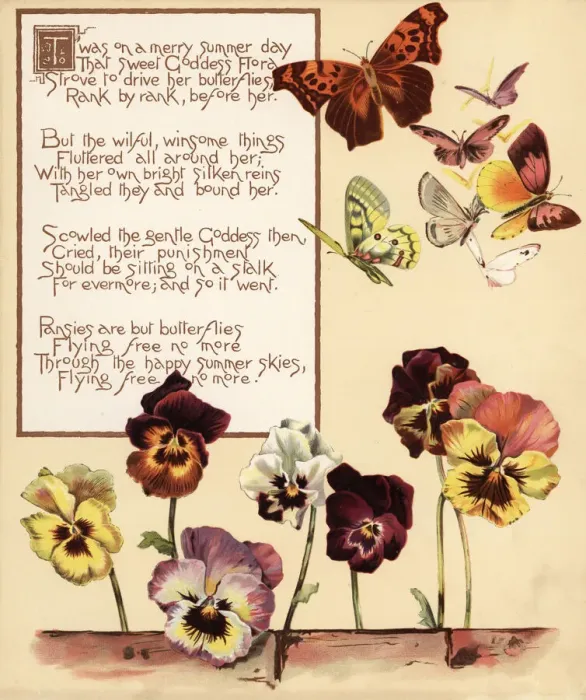 'Twas on a merry summer day
That sweet Goddess Flora
Strove to drive her butterflies,
Rank by rank, before her.
But the wilful, winsome things
Fluttered all around her;
With her own bright silken reins
Tangled they and bound her.
Scowled the gentle Goddess then,
Cried, their punishment
Should be sitting on a stalk
For evermore; and so it went.
Pansies are but butterflies
Flying free no more
Through the happy summer skies,
Flying free no more.